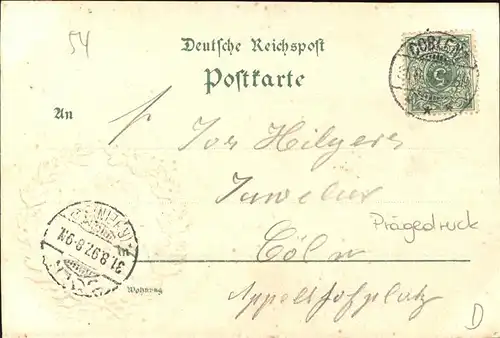 54
Deutsche Reichspost
Postkarte
COBLENZ
5
An
Jos Hilgers
Juwelier
Prägedruck
Cöln
31.8.97.8-9V.
Wohnung
Appellhofplatz
D